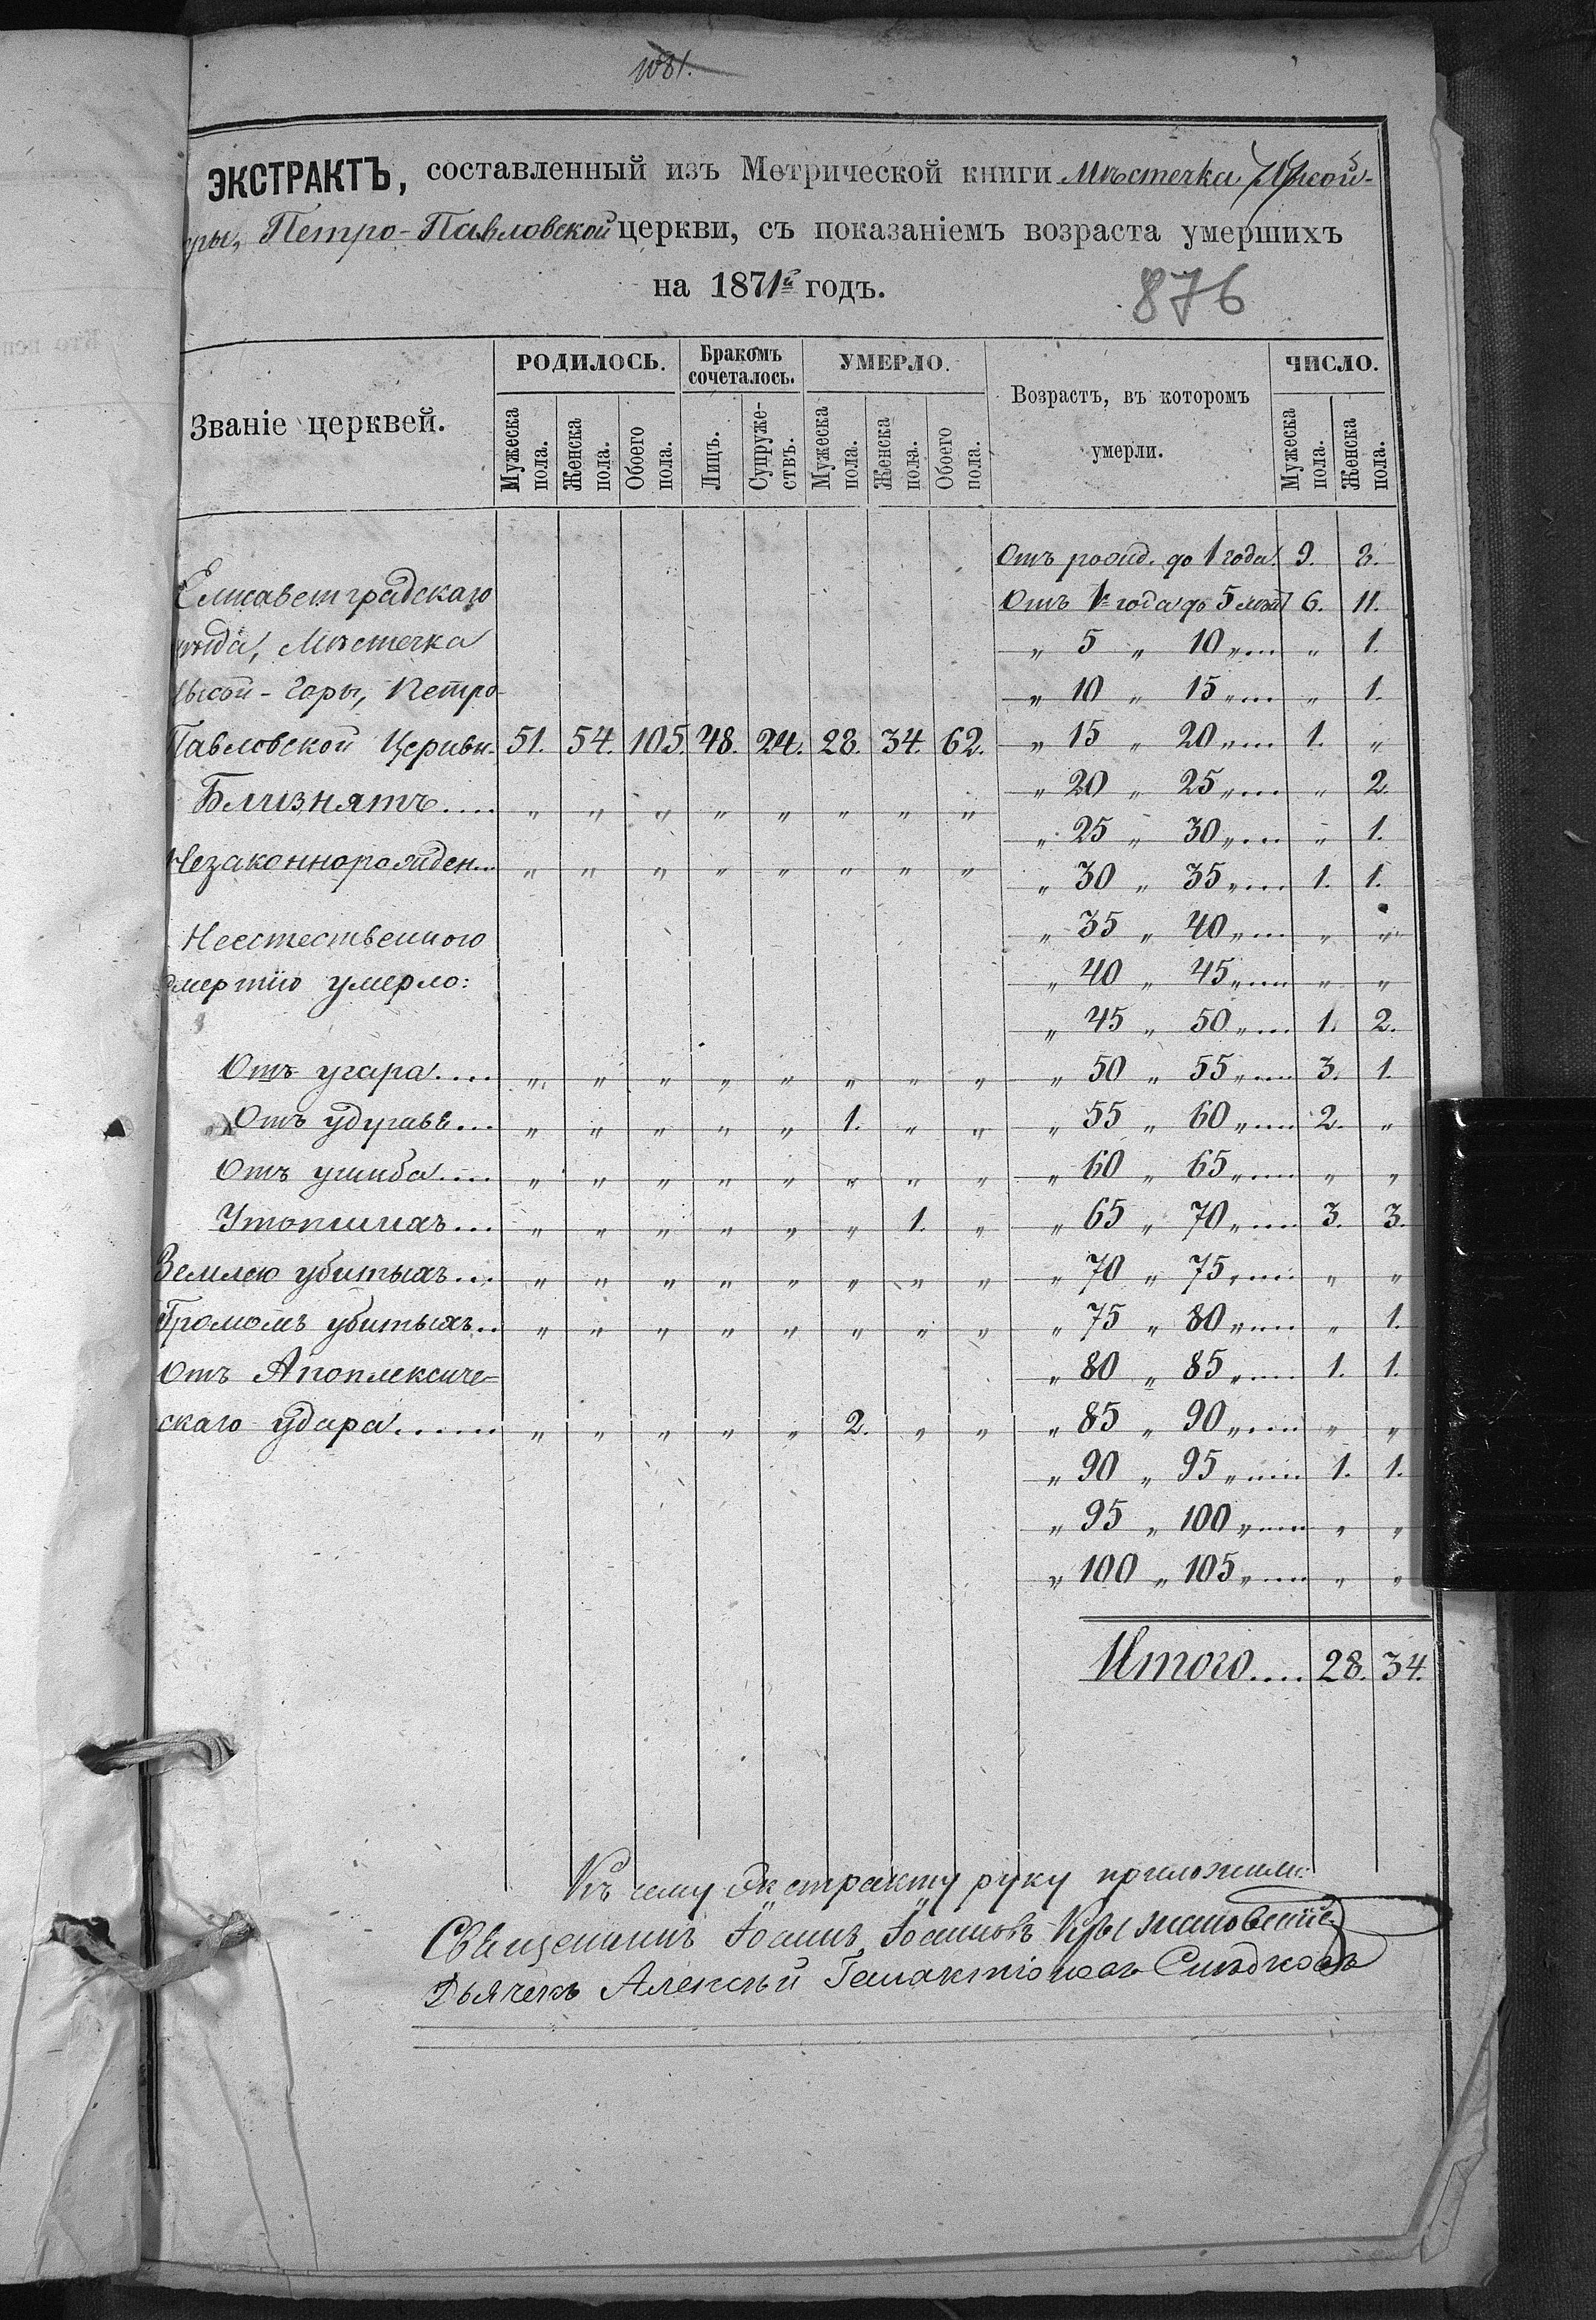 1081.
ЭКСТРАКТЪ, составленный изъ Метрической книги Мѣстечка Лысой-
ры, Петро-Павловской церкви, съ показаніемъ возраста умершихъ
на 1871й годъ.
876
Званіе церквей.
РОДИЛОСЬ.
Мужеска пола.
Женска пола.
Обоего пола.
Бракомъ сочеталось.
Лицъ.
Супружествъ.
УМЕРЛО.
Мужеска пола.
Женска пола.
Обоего пола.
Возрастъ, въ которомъ
умерли.
ЧИСЛО.
Мужеска пола.
Женска пола.
Елисаветградскаго
уѣзда, Мѣстечка
Лысой-Горы, Петро-
Павловской Церкви. 51. 54. 105. 48. 24. 28. 34. 62.
Близнятъ.... „ „ „ „ „ „ „ „
Незаконнорожден... „ „ „ „ „ „ „ „
Неестественною
смертію умерло:
Отъ угара.... „ „ „ „ „ „ „ „
Отъ удушья... „ „ „ „ „ 1. „ „
Отъ ушиба.... „ „ „ „ „ „ „ „
Утопшихъ... „ „ „ „ „ „ 1. „
Землею убитыхъ... „ „ „ „ „ „ „ „
Громомъ убитыхъ.. „ „ „ „ „ „ „ „
Отъ Апоплексиче=
скаго удара...... „ „ „ „ „ 2. „ „
Отъ рожд. до 1 года. 9. 8.
Отъ 1го года до 5 лѣтъ 6. 11.
„ 5 „ 10 „.... „ 1.
„ 10 „ 15 „.... „ 1.
„ 15 „ 20 „.... 1. „
„ 20 „ 25 „.... „ 2.
„ 25 „ 30 „.... „ 1.
„ 30 „ 35 „.... 1. 1.
„ 35 „ 40 „.... „ „
„ 40 „ 45 „.... „ „
„ 45 „ 50 „.... 1. 2.
„ 50 „ 55 „.... 3. 1.
„ 55 „ 60 „.... 2. „
„ 60 „ 65 „.... „ „
„ 65 „ 70 „.... 3. 3.
„ 70 „ 75 „.... „ „
„ 75 „ 80 „.... „ 1.
„ 80 „ 85 „.... 1. 1.
„ 85 „ 90 „.... „ „
„ 90 „ 95 „.... 1. 1.
„ 95 „ 100 „.... „ „
„ 100 „ 105 „.... „ „
Итого.... 28. 34.
Къ сему Экстракту руку приложили:
Священникъ Іоаннъ Іоанновъ
Дьячекъ Алексѣй